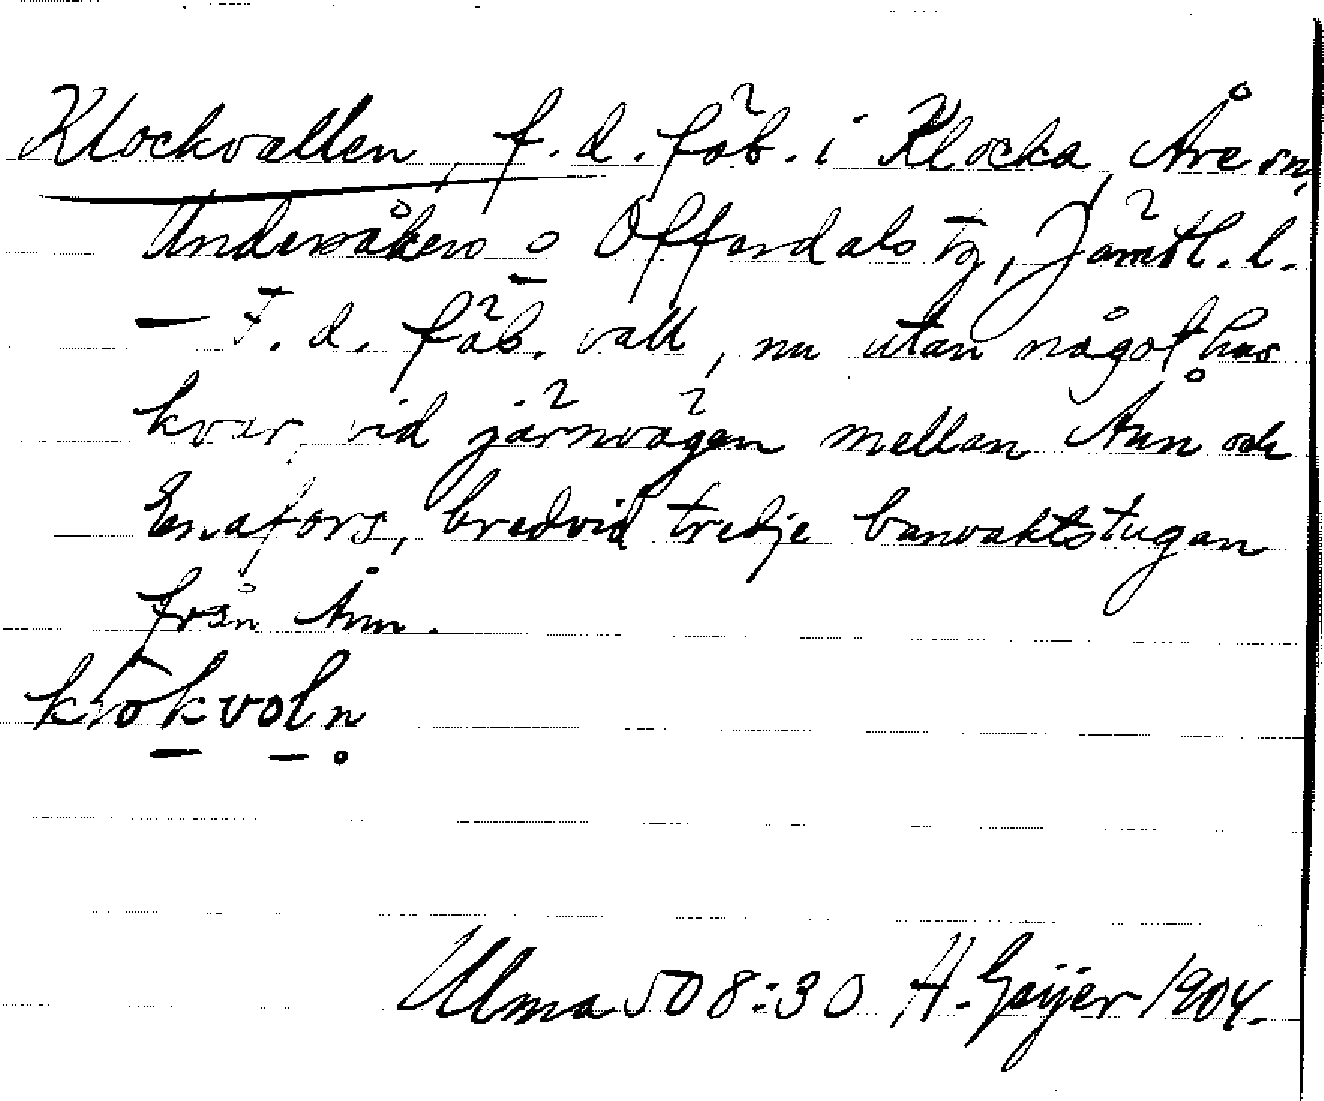 Klockvallen, f.d. fäb. i Klocka, Åre sn,
Undersåkers o Offerdals tg, Jämtl. l.
— F. d. fäb. vall, nu utan något hus
kvar, vid järnvägen mellan Ånn och
Enafors, bredvid tredje banvaktstugan
från Ånn.
Ulma 508:30 H. Geijer 1904.